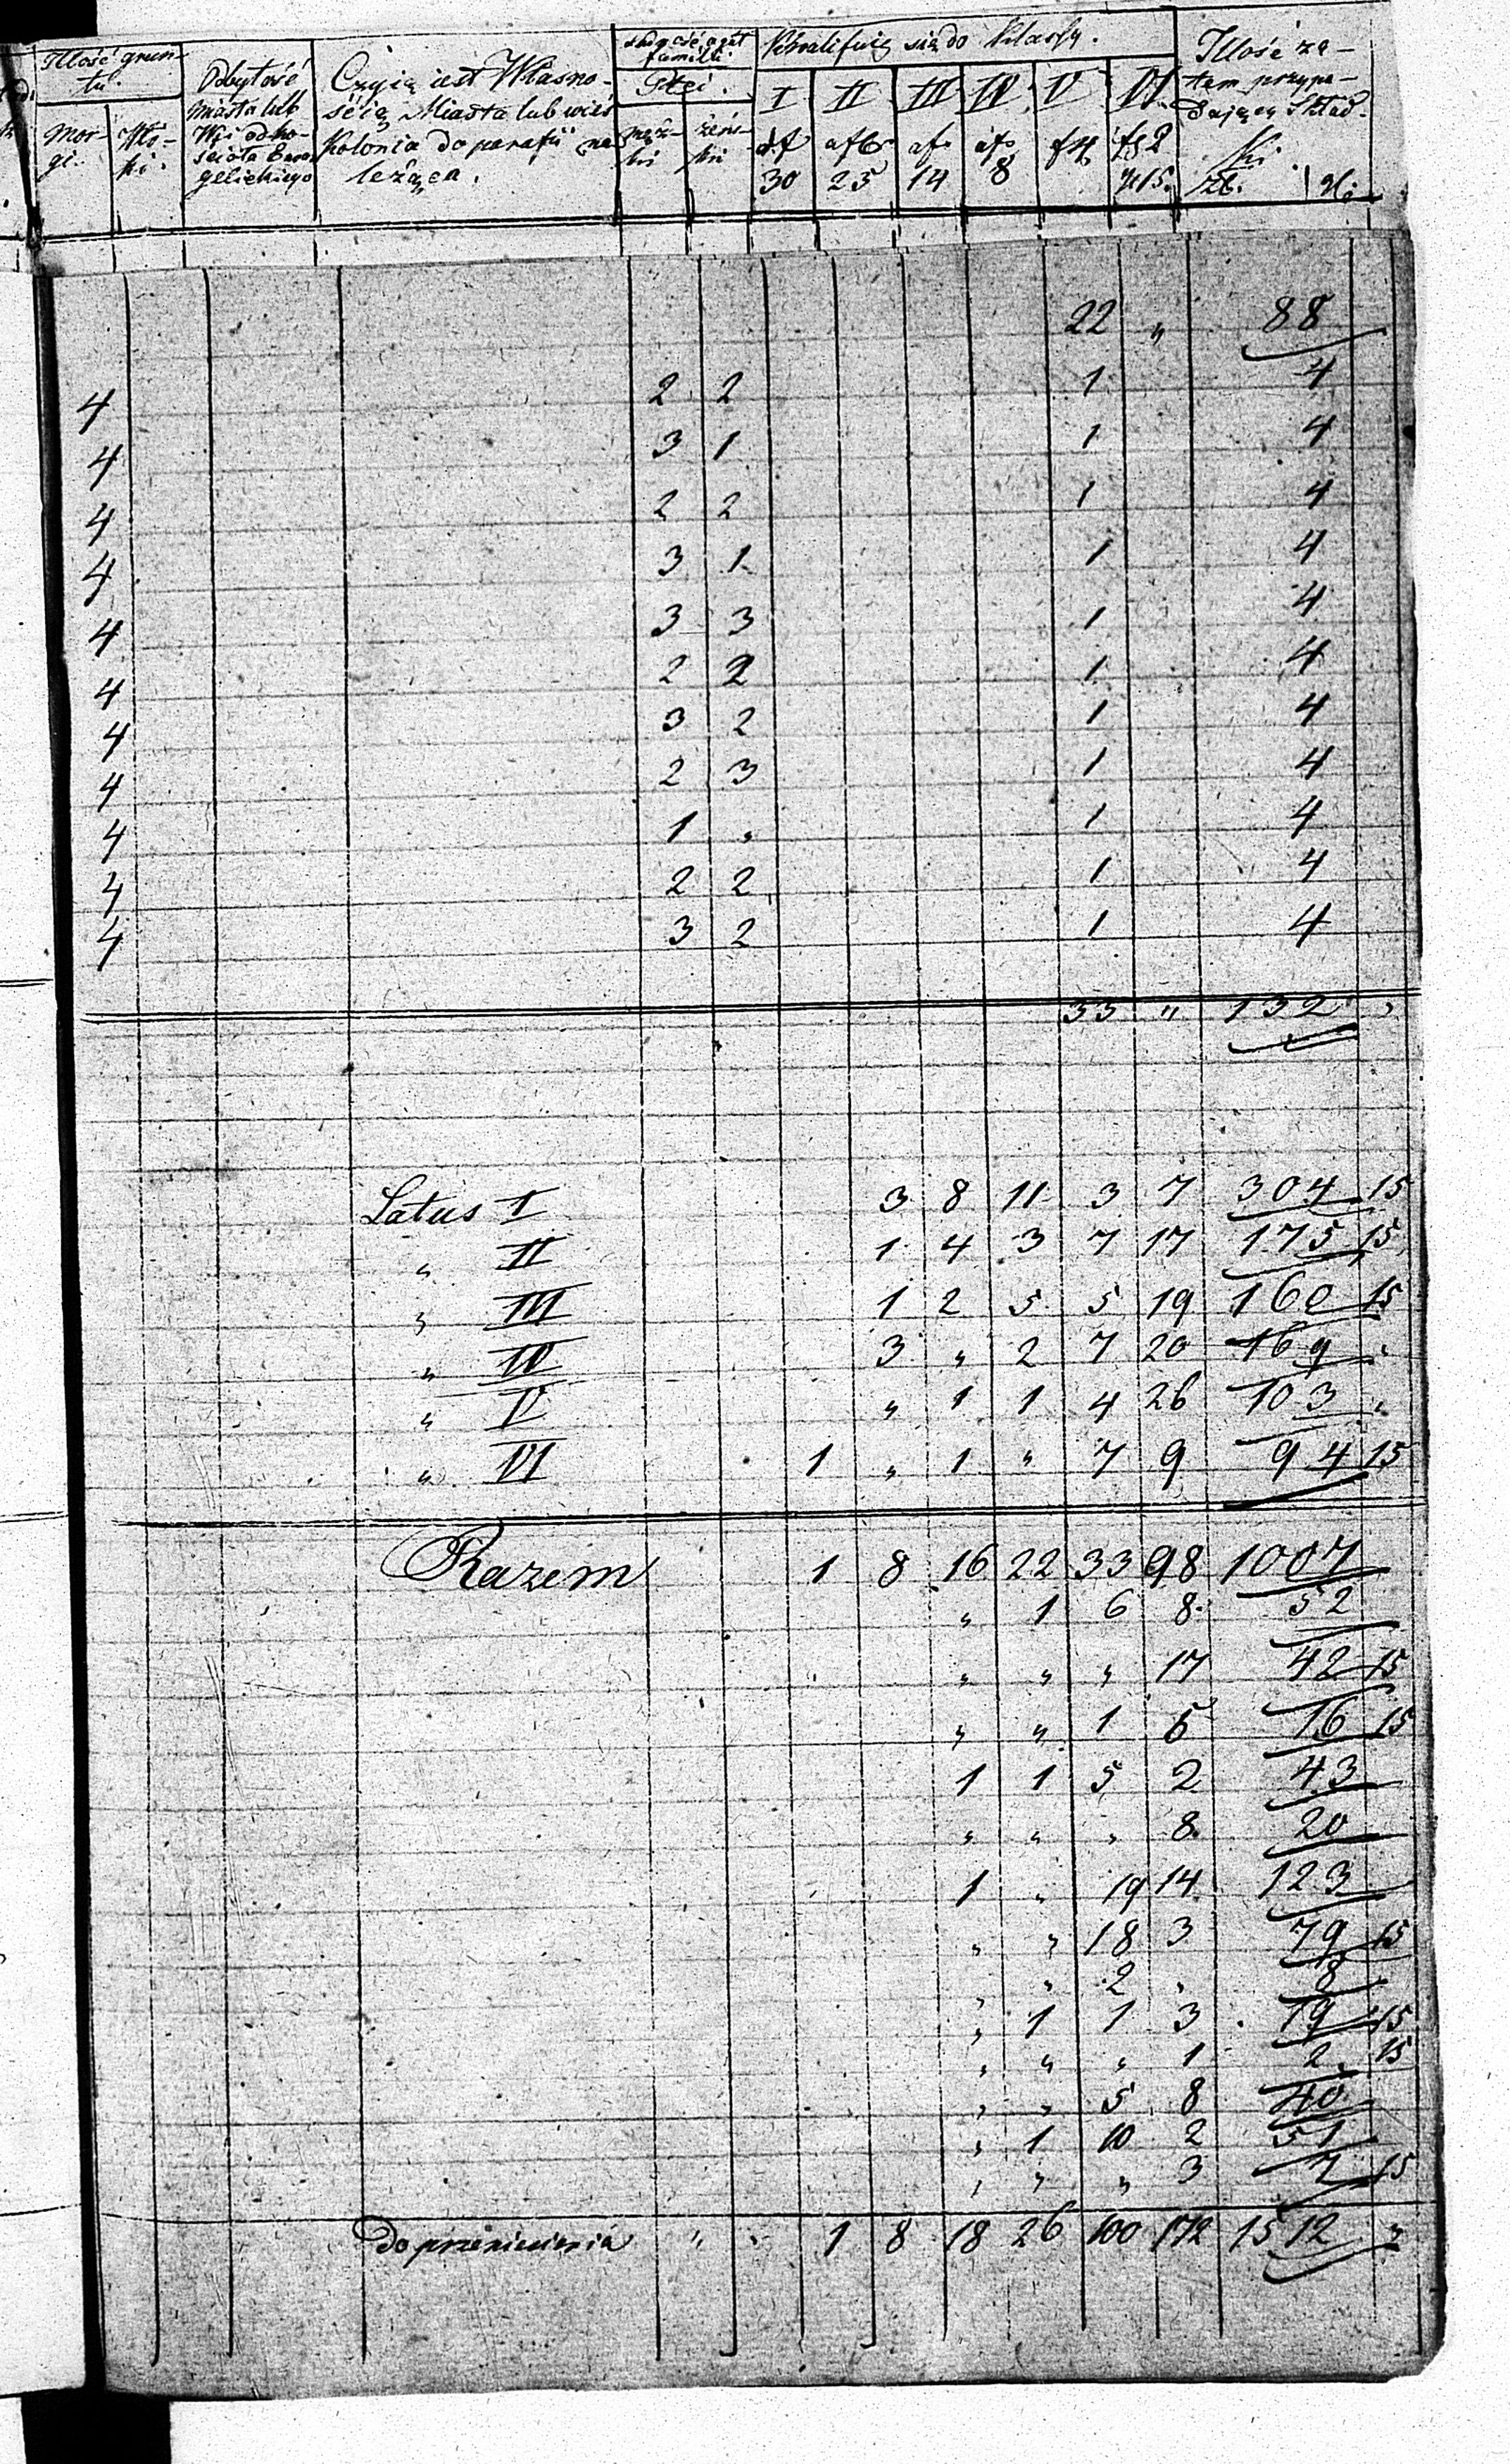 Illość grun-
tu.
Mor-
gi.
Wło-
ki.
Odbytość
Miasta lub
Wsi od ko-
ścioła Ewan
gelickiego
Czyią iest Własno-
ścią Miasta lub wieś
Kolonia do parafii na
leżąca.
familii
Płci.
męz-
ki
żeńs-
ki
Kwalifuię się do Klassy.
I II III IV V VI
30 25 14 8 f4 fs 2
gr 15.
Illość za-
tem przypa-
dającey Skład-
ki.
zł. | gr.
22 „ 88
4 2 2 1 4
4 3 1 1 4
4 2 2 1 4
4 3 1 1 4
4 3 3 1 4
4 2 2 1 4
4 3 2 1 4
4 2 3 1 4
4 1 „ 1 4
4 2 2 1 4
4 3 2 1 4
33 „ 132 „
Latus I 3 8 11 3 7 304 15
„ II 1 4 3 7 17 175 15
„ III 1 2 5 5 19 160 15
„ IV 3 „ 2 7 20 169 „
„ V „ 1 1 4 26 103 „
„ VI 1 „ 1 „ 7 9 94 15
Razem 1 8 16 22 33 98 1007
„ 1 6 8 52
„ „ „ 17 42 15
„ „ 1 5 16 15
1 1 5 2 43
„ „ „ 8 20
1 „ 19 14 123
„ „ 18 3 79 15
„ „ 2 „ 8
„ 1 1 3 19 15
„ „ „ 1 2 15
„ „ 5 8 40
„ 1 10 2 51
„ „ „ 3 7 15
Do przeniesienia „ „ 1 8 18 26 100 172 1512 „